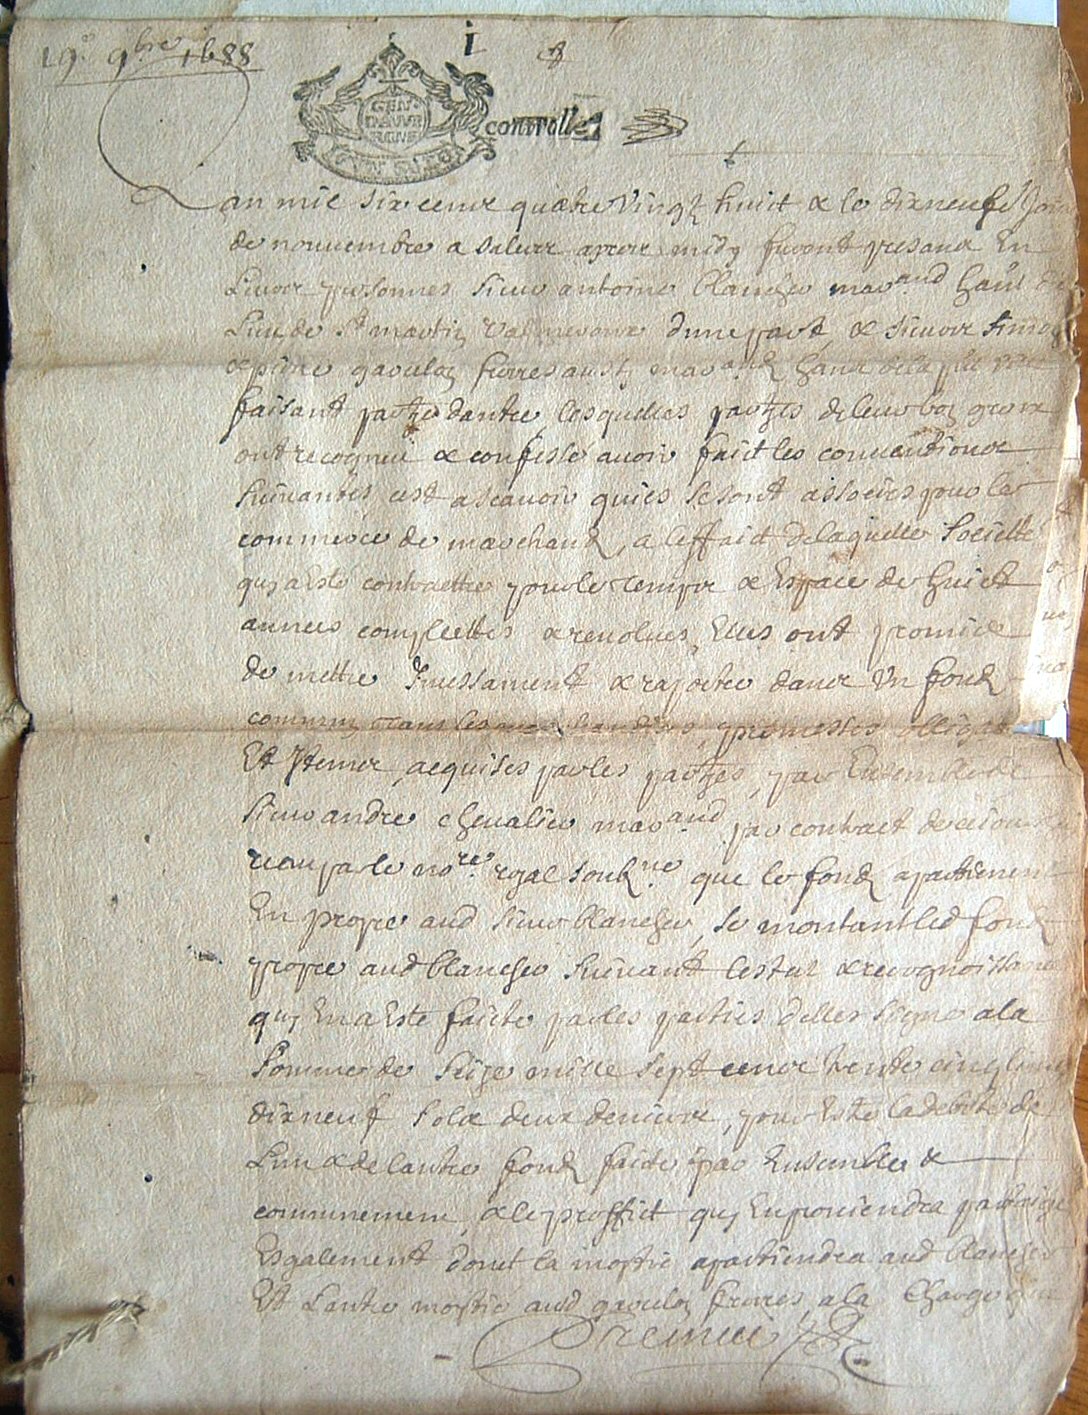 19e 9bre 1688
i
GEN
DAUVE
RGNE
controlle
Lan mil six cens quatre vingtz huict & le dixneufe Jour
de nouvembre a apres midy furent presans En
Leurs personnes sieur antoine blancher marand habt
Lieu de St martin dune part, & sieurs Simon
& pierre freres aussy marandz habt de la ville
faisant parties dautre, lesquelles parties de leur bon gre
ont recogneu & confesse avoir faict les conventions
suivantes cest ascavoir quies se sont associes pour le
commerce de marchand, a leffaict de laquelle societte
quy a Este contractee pour le temps & Espace de huict
annees complettes & revolues, Elles ont promis
de mettre Incessament & raporter dans Un fondz
commun tous les marchandises, promesses obliga
Et Items acquises par les parties, par Ensemble de
sieur andre chevalier marand par contract de ce jour
receu par le nore royal soubzne que le fondz apartienent
En propre aud sieur blancher, se montant led fondz
propre aud blancher suivant lestat & recognoissance
quy En a Este faicte par les parties delles signe a la
somme de seize mille sept cens trente cinq livres
dixneuf solz deux deniers, pour Estre la debite de
Lun & de lautre fondz faicte par Ensemble &
communement, & le proffict quy En proviendra partaige
Esgalement dont la moytie apartiendra aud blancher
Et Lautre moytie aud freres, a la charge que